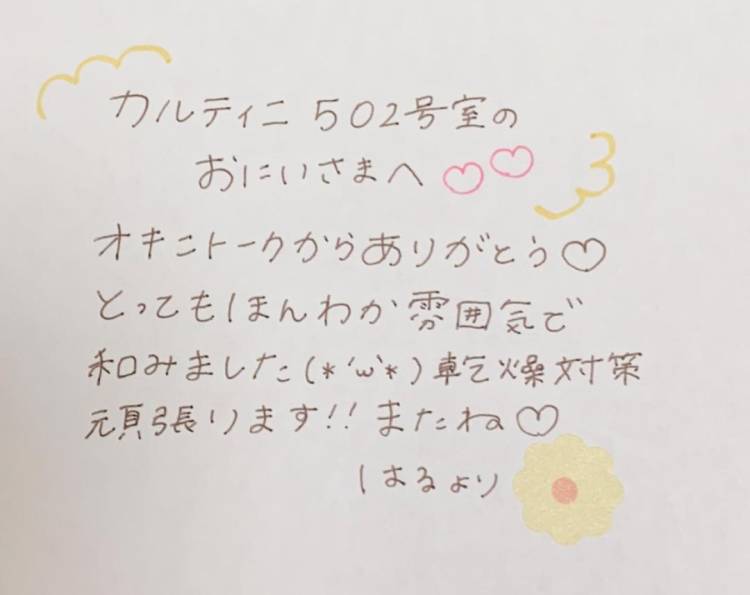 カルティニ 502号室の
おにいさまへ♡♡
オキニトークからありがとう♡
とってもほんわか雰囲気で
和みました(*´ω`*)乾燥対策
頑張ります!!またね♡
はるより